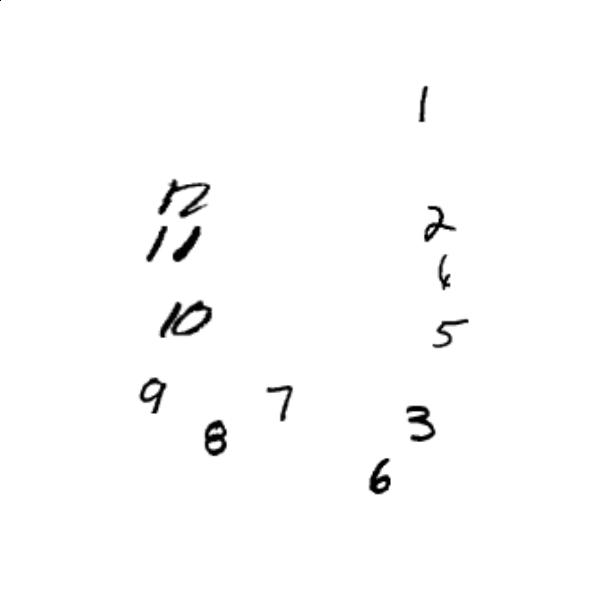 1
12
2
11
4
10
5
9
7
3
8
6